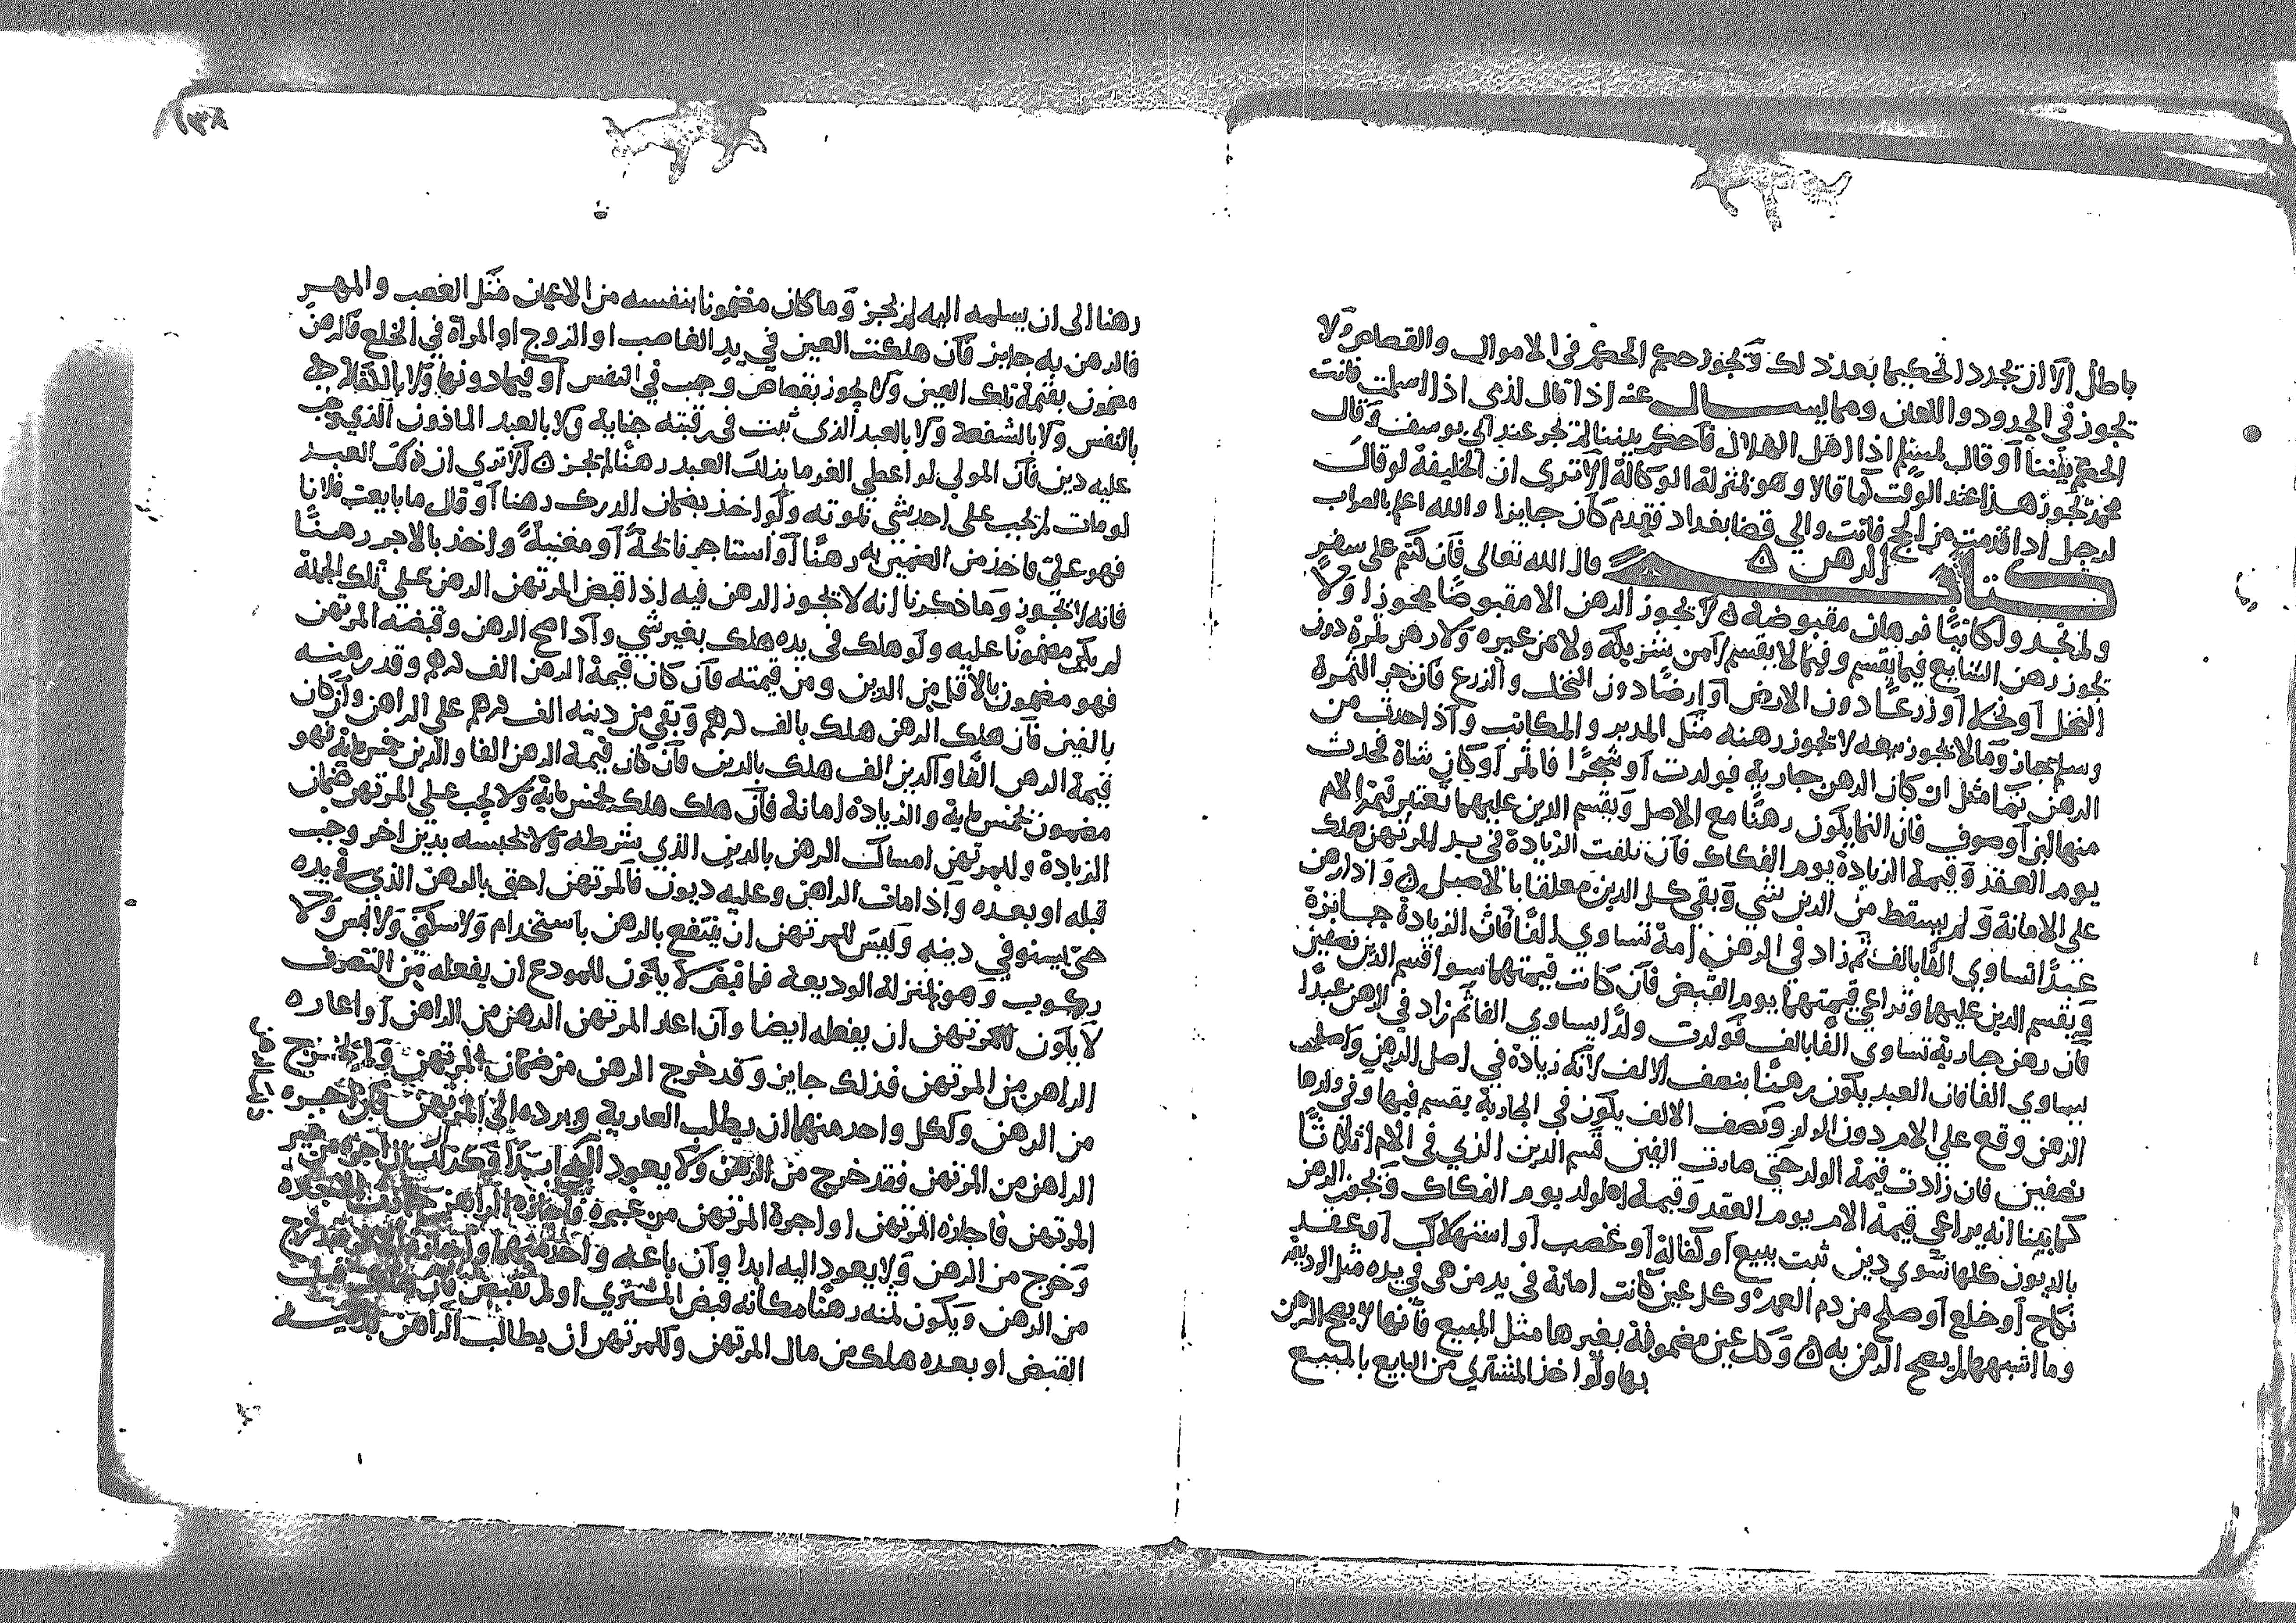 باطل الا ان يجدد التحكيم بعد ذلك ويجوز حكم الحكم في الاموال والقصاص ولا
يجوز في الحدود واللعان ومما يسال عنه اذا قال لذمي اذا اسلمت فانت
الحكم بيننا او قال لمسلم اذا اهل الهلال فاحكم بيننا لم تجز عند ابي يوسف وقال
محمد تجوز هذا عند الوقت كما قالا وهو بمنزلة الوكالة الا ترى ان الخليفة لو قال
لرجل اذا قدمت من الحج فانت والي قضا بغداد فقدم كان جايزا والله اعلم بالصواب
كتاب الرهن ه قال الله تعالى فان كنتم على سفر
ولم تجدوا كاتبا فرهان مقبوضة ه لا يجوز الرهن الا مقبوضا محوزا ولا
يجوز رهن الشايع فيما يقسم وفيما لا يقسم لا من شريكه ولا من غيره ولا رهن ثمرة دون
النخل او نخلا او زرعا دون الارض او ارضا دون النخل والزرع فان جز الثمرة
وسلم جاز وما لا يجوز بيعه لا يجوز رهنه مثل المدبر والمكاتب واذا حدث من
الرهن نما مثل ان كان الرهن جارية فولدت او شجرا فاثمر او كان شاة فحدث
منها لبن او صوف فان النما يكون رهنا مع الاصل ويقسم الدين عليهما تعتبر قيمة الام
يوم العقد وقيمة الزيادة يوم الفكاك فان تلفت الزيادة في يد المرتهن هلك
على الامانة ولم يسقط من الدين شي وبقي كل الدين معلقا بالاصل ه واذا رهن
عبدا يساوي الفا بالف ثم زاد في الرهن امة تساوي الفا فان الزيادة جايزة
ويقسم الدين عليها وتراعي قيمتهما يوم القبض فان كانت قيمتهما سوا قسم الدين نصفين
فان رهن جارية تساوي الفا بالف فولدت ولدا يساوي الفا ثم زاد في الرهن عبدا
يساوي الفا فان العبد يكون رهنا بنصف الالف لانه زيادة في اصل الرهن واصل
الرهن وقع على الام دون الولد ونصف الالف يكون في الجارية يقسم فيها وفي ولدها
نصفين فان زادت قيمة الولد حتى صارت الفين قسم الدين الذي في الام اثلاثا
كما بينا انه يراعي قيمة الام يوم العقد وقيمة الولد يوم الفكاك ويجوز الرهن
بالديون كلها سوي دين ثبت ببيع او كفالة او غصب او استهلاك او عقد
نكاح او خلع او صلح من دم العمد وكل عين كانت امانة في يد من هي في يده مثل الوديعة
وما اشبهها لم يصح الرهن به ه وكل عين مضمونة بغيرها مثل المبيع فانها لا يصح الرهن
بها ولو اخذ المشتري من البايع بالمبيع
رهنا الى ان يسلمه اليه لم يجز وما كان مضمونا بنفسه من الاعيان مثل الغصب والمهر
فالرهن به جايز فان هلكت العين في يد الغاصب او الزوج او المراة في الخلع فالرهن
مضمون بقيمة تلك العين ولا يجوز بقصاص وجب في النفس او فيما دونها ولا بالكفالة
بالنفس ولا بالشفعة ولا بالعبد الذي ثبت في رقبته جناية ولا بالعبد الماذون الذي وجب
عليه دين فان المولى لو اعطى الغرما بذلك العبد رهنا لم يجز ه الا تري ان ذلك العبد
لو مات لم يجب على احد شي بموته ولو اخذ بضمان الدرك رهنا او قال ما بايعت فلانا
فهو علي فاخذ من الضمين به رهنا او استاجر نائحة او مغنية واخذ بالاجر رهنا
فانه لا يجوز وما ذكرنا انه لا يجوز الرهن فيه اذا قبض المرتهن الرهن على تلك الجملة
لم يكن مضمونا عليه ولو هلك في يده هلك بغير شي واذا صح الرهن وقبضه المرتهن
فهو مضمون بالاقل من الدين ومن قيمته فان كان قيمة الرهن الف درهم وقد رهنه
بالفين فان هلك الرهن هلك بالف درهم وبقي من دينه الف درهم على الراهن وان كان
قيمة الرهن الفا والدين الف هلك بالدين فان كان قيمة الرهن الفا والدين خمس ماية فهو
مضمون بخمس ماية والزيادة امانة فان هلك هلك بخمس ماية ولا يجب على المرتهن ضمان
الزيادة وللمرتهن امساك الرهن بالدين الذي شرطه ولا يحبسه بدين اخر وجب
قبله او بعده واذا مات الراهن وعليه ديون فالمرتهن احق بالرهن الذي في يده
حتى يستوفي دينه وليس للمرتهن ان ينتفع بالرهن باستخدام ولا سكنى ولا لبس ولا
ركوب وهو بمنزلة الوديعة فما لا يكون للمودع ان يفعله من التصرف
لا يكون للمرتهن ان يفعله ايضا وان اعار المرتهن الرهن من الراهن او اعاره
الراهن من المرتهن فذلك جايز وقد خرج الرهن من ضمان المرتهن ولم يخرج
من الرهن ولكل واحد منهما ان يطلب العارية ويرده الى المرتهن فان اجره
الراهن من المرتهن فقد خرج من الرهن ولا يعود اليه ابدا وكذلك ان اجره من غير
المرتهن فاجازه المرتهن او اجره المرتهن من غيره فاجازه الراهن جازت الاجارة
وخرج من الرهن ولا يعود اليه ابدا وان باعه احدهما واجازه الاخر فقد خرج
من الرهن ويكون ثمنه رهنا مكانه قبض المشتري او لم يقبض فان هلك قبل
القبض او بعده هلك من مال المرتهن وللمرتهن ان يطالب الراهن بدينه